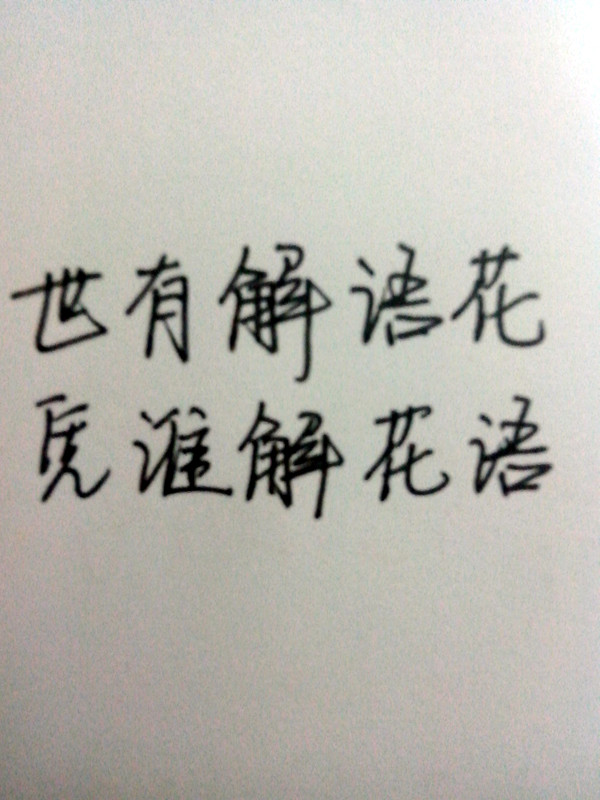 世有解语花
凭谁解花语